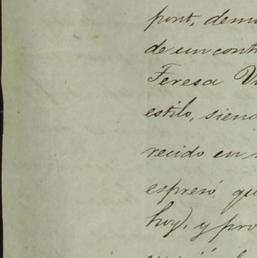 pont, demu
de un contr
Teresa V
estilo, siend
recido en
espresó qu
hoy), y pro